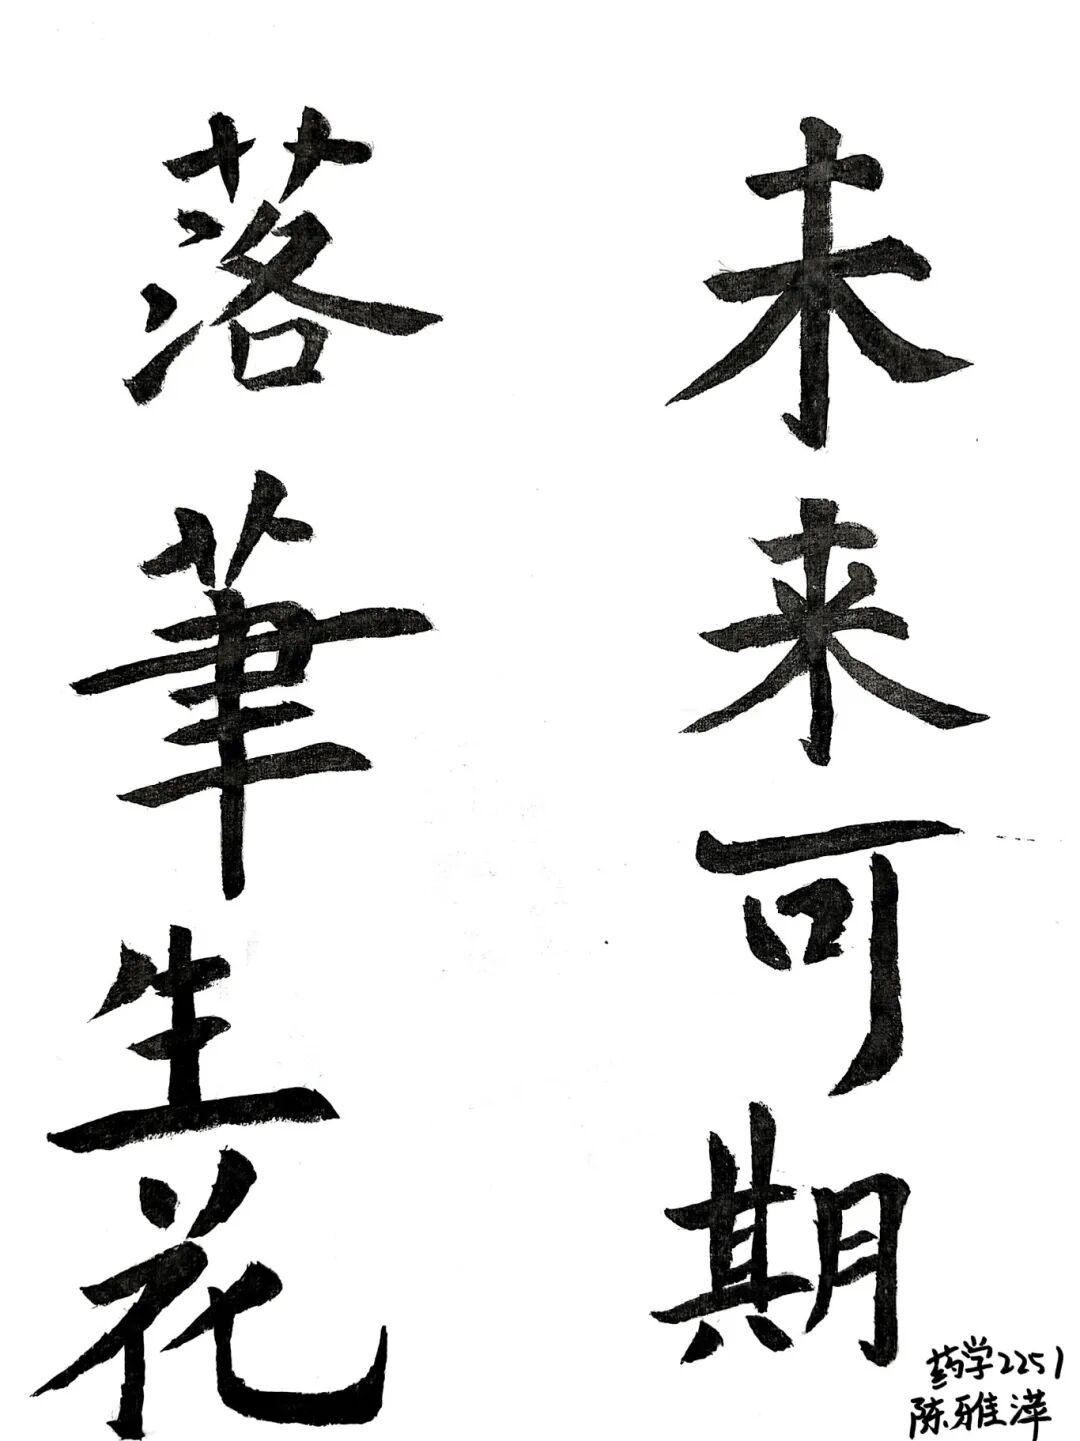 未来可期
落筆生花
药学2251
陈雅萍